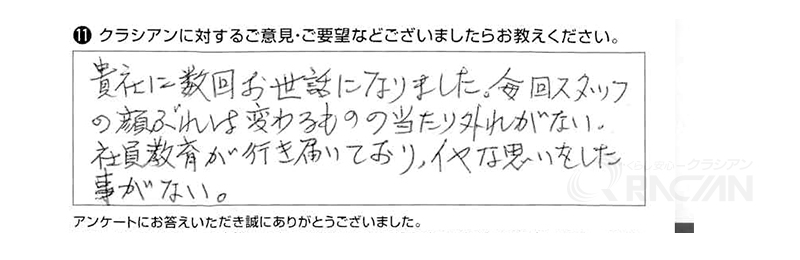 ⑪ クラシアンに対するご意見・ご要望などございましたらお教えください。
貴社に数回お世話になりました。毎回スタッフ
の顔ぶれは変わるものの当たり外れがない。
社員教育が行き届いており、イヤな思いをした
事がない。
くらし安心クラシアン
QRACIAN
アンケートにお答えいただき誠にありがとうございました。